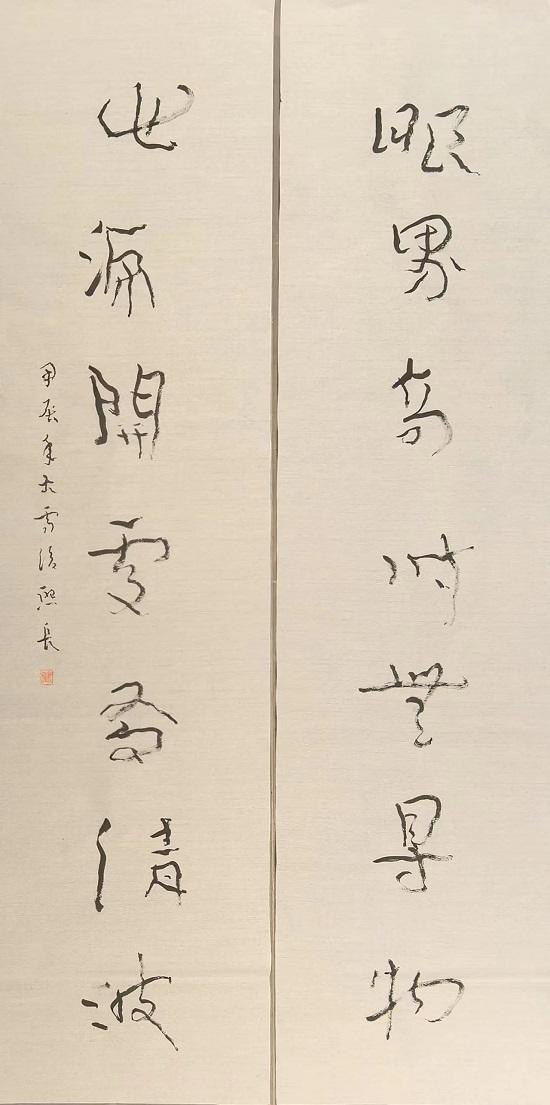 眼界高時無㝵物
心源開處有清波
甲辰年大雪後長